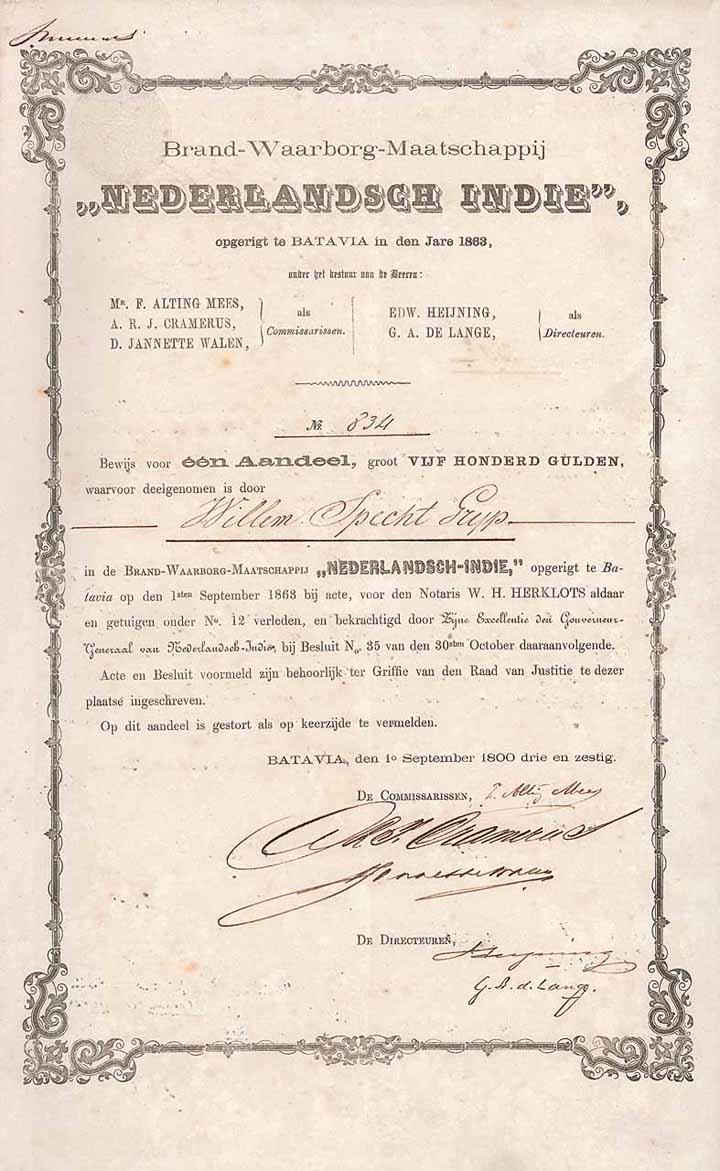 Brand-Waarborg-Maatschappij
„NEDERLANDSCH INDIE”,
opgerigt te BATAVIA in den Jare 1863,
onder het bestuur van de Heeren:
Mr. F. ALTING MEES,
A. R. J. CRAMERUS,
D. JANNETTE WALEN,
als
Commissarissen.
EDW. HEIJNING,
G. A. DE LANGE,
als
Directeuren.
No. 834
Bewijs voor één Aandeel, groot VIJF HONDERD GULDEN,
waarvoor deelgenomen is door
Willem Specht Gryp
in de BRAND-WAARBORG-MAATSCHAPPIJ „NEDERLANDSCH-INDIE,” opgerigt te Ba-
tavia op den 1sten September 1863 bij acte, voor den Notaris W. H. HERKLOTS aldaar
en getuigen onder No. 12 verleden, en bekrachtigd door Zijne Excellentie den Gouverneur-
Generaal van Nederlandsch-Indie, bij Besluit No. 35 van den 30sten October daaraanvolgende.
Acte en Besluit voormeld zijn behoorlijk ter Griffie van den Raad van Justitie te dezer
plaatse ingeschreven.
Op dit aandeel is gestort als op keerzijde te vermelden.
BATAVIA, den 1o September 1800 drie en zestig.
DE COMMISSARISSEN, F. Alting Mees
A. R. J. Cramerus
DE DIRECTEUREN,
Heijning
G. A. d. Lange.